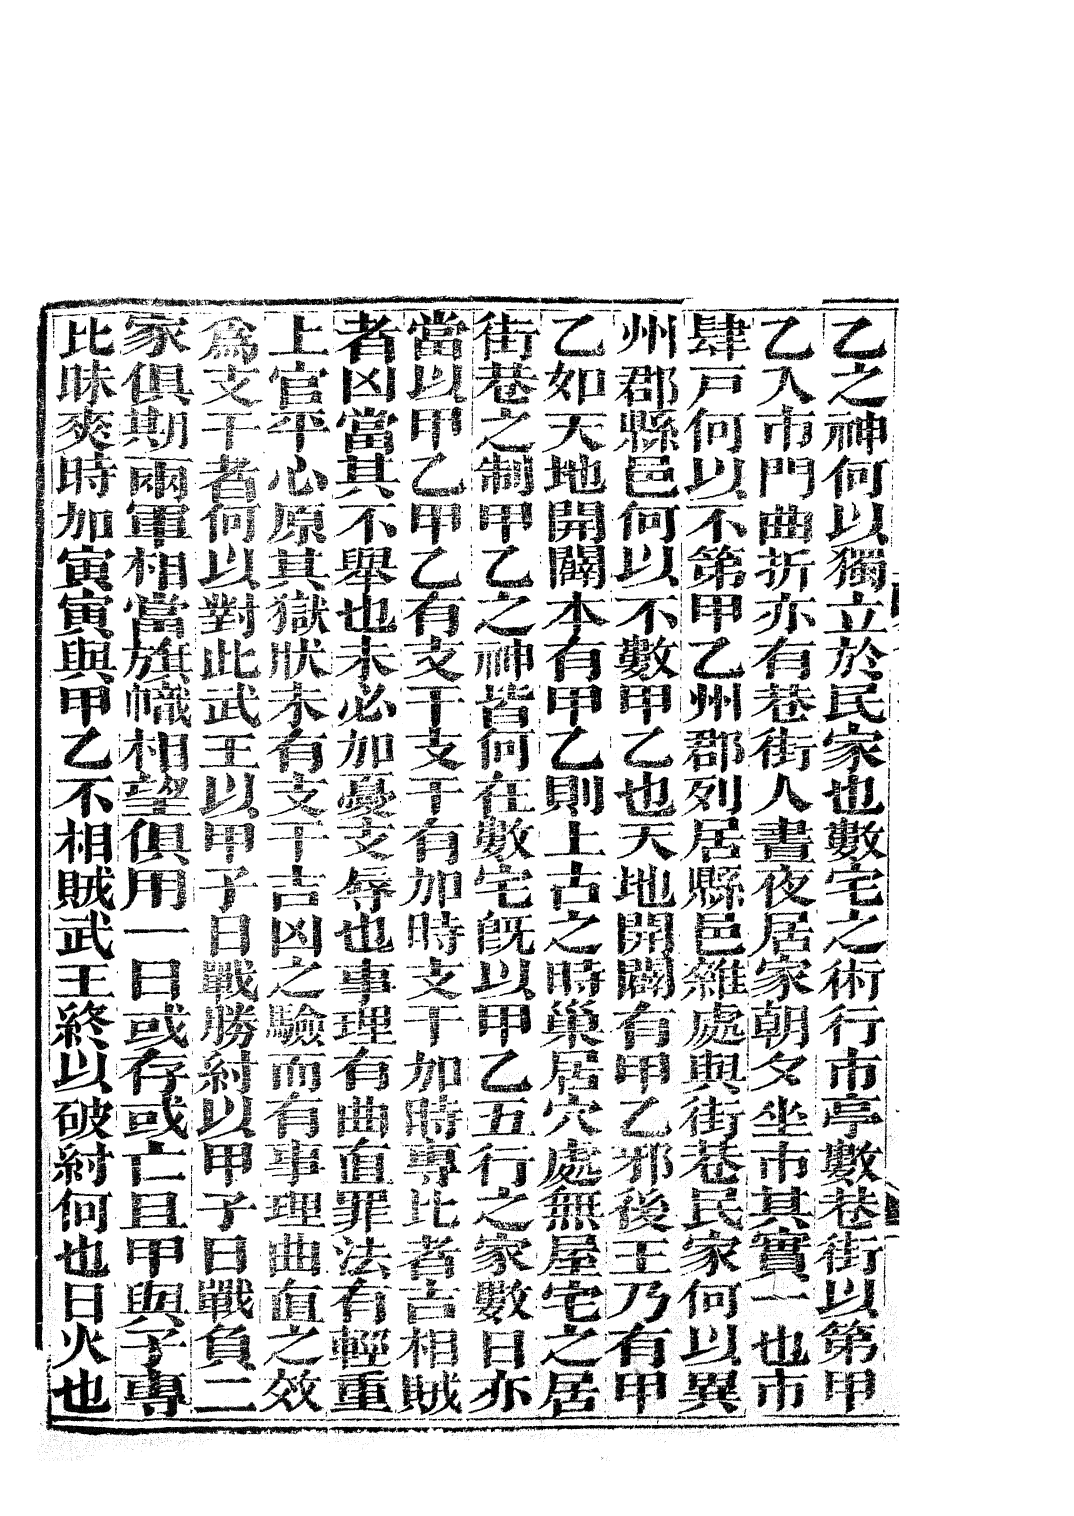 乙之神何以獨立於民家也數宅之術行市亭數巷街以第甲
乙入市門曲折亦有巷街人晝夜居家朝夕坐市其實一也市
肆戸何以不第甲乙州郡列居縣邑雜處與街巷民家何以異
州郡縣邑何以不數甲乙也天地開闢有甲乙邪後王乃有甲
乙如天地開闢本有甲乙則上古之時巢居穴處無屋宅之居
街巷之制甲乙之神皆何在數宅旣以甲乙五行之家數日亦
當以甲乙甲乙有支干支干有加時支干加時專比者吉相賊
者凶當其不舉也未必加憂支辱也事理有曲直罪法有輕重
上官平心原其獄狀未有支干吉凶之驗而有事理曲直之效
爲支干者何以對此武王以甲子日戰勝紂以甲子日戰負二
家俱期兩軍相當旗幟相望俱用一日或存或亡且甲與子專
比昧爽時加寅寅與甲乙不相賊武王終以破紂何也日火也